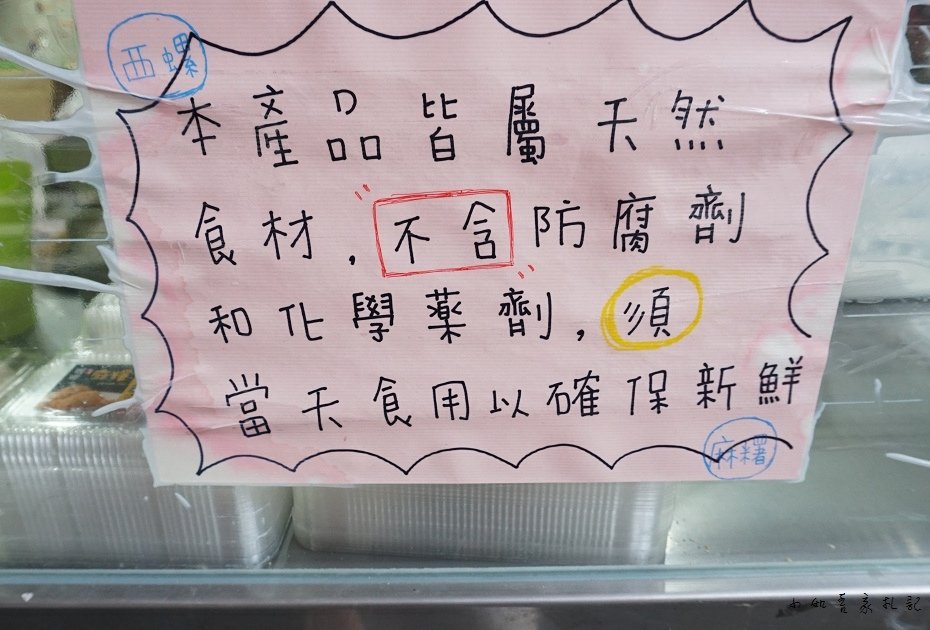 西螺
本產品皆屬天然
食材，不含防腐劑
和化學藥劑，須
當天食用以確保新鮮
麻糬
小如吾家札記